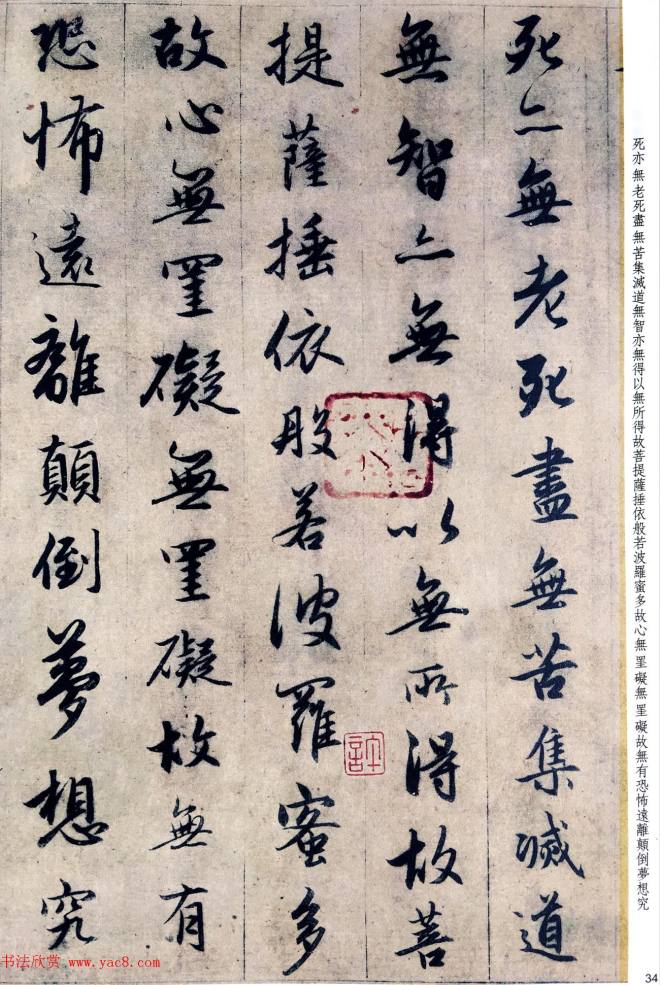 死亦無老死盡無苦集滅道
無智亦無得以無所得故菩
提薩捶依般若波羅蜜多
故心無罣礙無罣礙故無有
恐怖遠離顛倒夢想究
死亦無老死盡無苦集滅道無智亦無得以無所得故菩提薩捶依般若波羅蜜多故心無罣礙無罣礙故無有恐怖遠離顛倒夢想究
34
书法欣赏 www.yac8.com